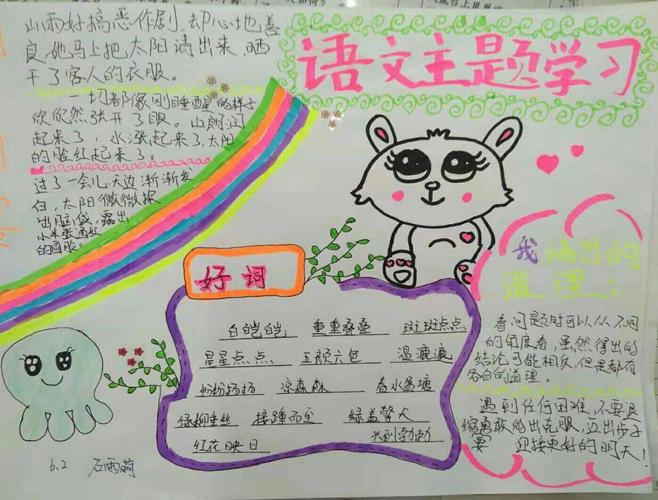 语文主题学习
山雨好搞恶作剧,却心地善
良,她马上把太阳请出来,晒
干了客人的衣服。
一切都像刚睡醒的样子
欣欣然张开了眼。山朗润
起来了,水涨起来了,太阳
的脸红起来了。
过了一会儿,天边渐渐发
白,太阳微微探
出脑袋,露出
小半张
的面
好词
白皑皑 重重叠叠 斑斑点点
星星点点 五颜六色 湿漉漉
纷纷扬扬 凉森森 春水
绿柳垂丝 接踵而至 绿盖擎天
红花映日 兴致勃勃
我悟出的
道理:
看问题时可以从不同
的角度看,虽然得出的
结论可能相反,但是都有
各自的道理。
遇到任何困难,不要退
缩,勇敢
要 迎接更好的明天!
6.2 石雨萌